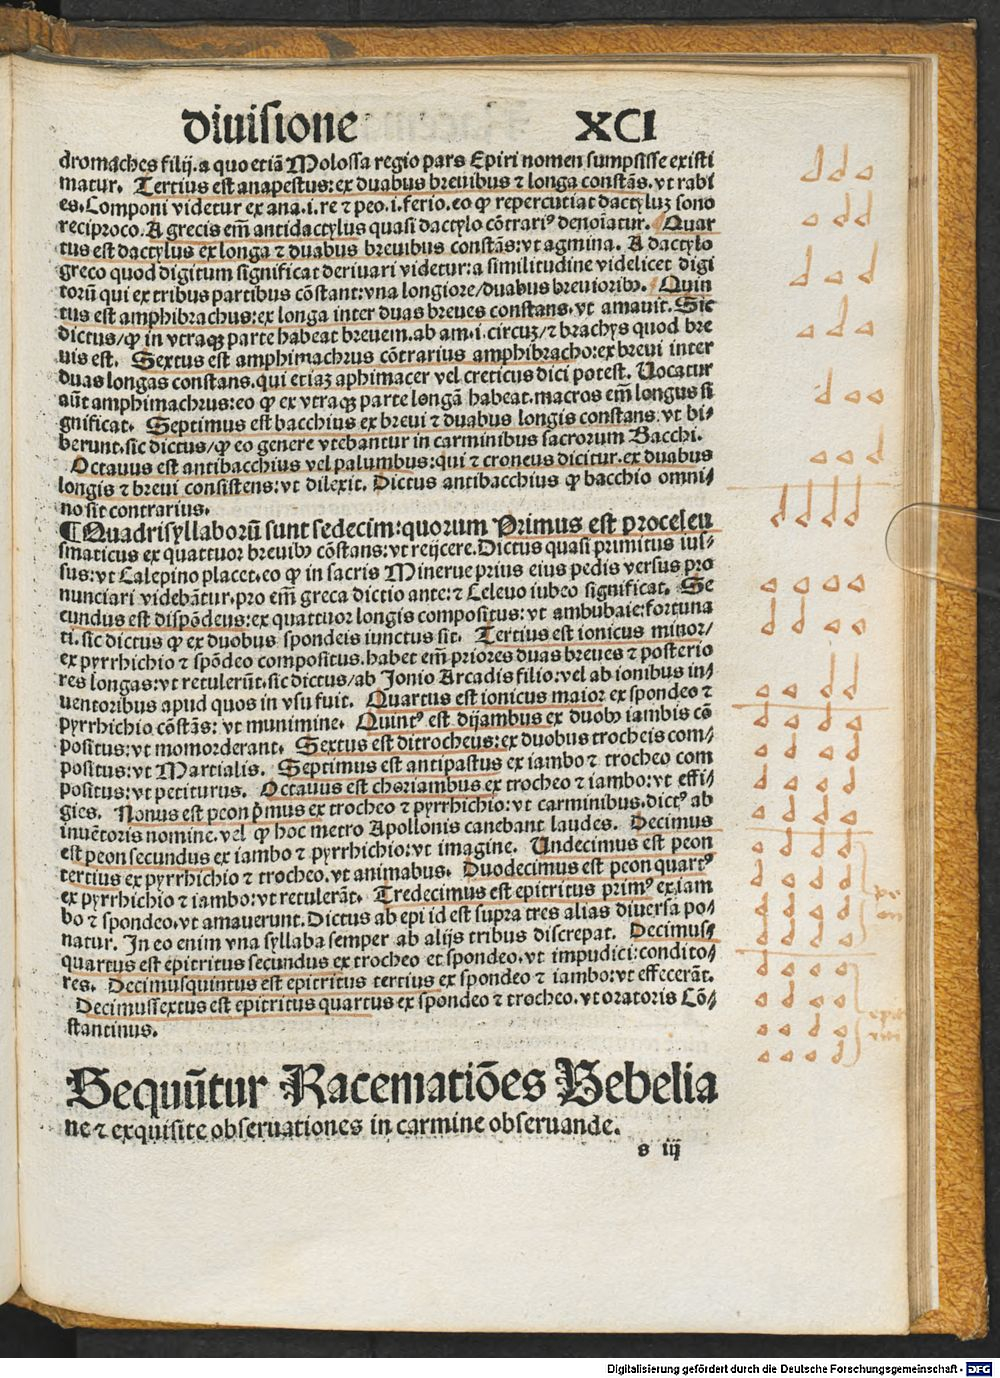 diuisione XCI
dromaches filij. a quo etiā Molossa regio pars Epiri nomen sumpsisse existi
matur. Tertius est anapestus: ex duabus breuibus ⁊ longa constās. vt rabi
es. Componi videtur ex ana .i. re ⁊ peo .i. ferio. eo ꝙ repercutiat dactyluꝫ sono
reciproco. A grecis em̄ antidactylus quasi dactylo cōtrariꝰ denoīatur. Quar
tus est dactylus ex longa ⁊ duabus breuibus constās: vt agmina. A dactylo
greco quod digitum significat deriuari videtur: a similitudine videlicet digi
torū qui ex tribus partibus cōstant: vna longiore/ duabus breuioribꝰ. Quin
tus est amphibrachus: ex longa inter duas breues constans. vt amauit. Sic
dictus/ ꝙ in vtraqꝫ parte habeat breuem. ab am .i. circuꝫ/ ⁊ brachys quod bre
uis est. Sextus est amphimachrus cōtrarius amphibracho: ex breui inter
duas longas constans. qui etiaꝫ aphimacer vel creticus dici potest. Uocatur
aūt amphimachrus: eo ꝙ ex vtraqꝫ parte longā habeat. macros em̄ longus si
gnificat. Septimus est bacchius ex breui ⁊ duabus longis constans. vt bi⸗
berunt. sic dictus/ ꝙ eo genere vtebantur in carminibus sacrorum Bacchi.
Octauus est antibacchius vel palumbus: qui ⁊ croneus dicitur. ex duabus
longis ⁊ breui consistens: vt dilexit. Dictus antibacchius ꝙ bacchio omni⸗
no sit contrarius.
¶Quadrisyllaborū sunt sedecim: quorum Primus est proceleu
smaticus ex quattuor breuibꝰ cōstans: vt reijcere. Dictus quasi primitus ius⸗
sus: vt Calepino placet. eo ꝙ in sacris Minerue prius eius pedis versus pro
nunciari videbātur. pro em̄ greca dictio ante: ⁊ Celeuo iubeo significat. Se
cundus est dispōdeus: ex quattuor longis compositus: vt ambubaie: fortuna
ti. sic dictus ꝙ ex duobus spondeis iunctus sit. Tertius est ionicus minor/
ex pyrrhichio ⁊ spōdeo compositus. habet em̄ priores duas breues ⁊ posterio
res longas: vt retulerūt. sic dictus/ ab Ionio Arcadis filio: vel ab ionibus in⸗
uentoribus apud quos in vsu fuit. Quartus est ionicus maior ex spondeo ⁊
pyrrhichio cōstās: vt munimine. Quintꝰ est dijambus ex duobꝰ iambis cō
positus: vt momorderant. Sextus est ditrocheus: ex duobus trocheis com⸗
positus: vt Martialis. Septimus est antipastus ex iambo ⁊ trocheo com
positus: vt petiturus. Octauus est choriambus ex trocheo ⁊ iambo: vt effi⸗
gies. Nonus est peon p̄mus ex trocheo ⁊ pyrrhichio: vt carminibus. dictꝰ ab
inuētoris nomine. vel ꝙ hoc metro Apollonis canebant laudes. Decimus
est peon secundus ex iambo ⁊ pyrrhichio: vt imagine. Undecimus est peon
tertius ex pyrrhichio ⁊ trocheo. vt animabus. Duodecimus est peon quartꝰ
ex pyrrhichio ⁊ iambo: vt retulerāt. Tredecimus est epitritus primꝰ ex iam
bo ⁊ spondeo. vt amauerunt. Dictus ab epi id est supra tres alias diuersa po⸗
natur. In eo enim vna syllaba semper ab alijs tribus discrepat. Decimusꝫ
quartus est epitritus secundus ex trocheo et spondeo. vt impudici: condito⸗
res. Decimusquintus est epitritus tertius ex spondeo ⁊ iambo: vt effecerāt.
Decimussextus est epitritus quartus ex spondeo ⁊ trocheo. vt oratoris Cō⸗
stantinus.
Sequūtur Racematiōes Bebelia
ne ⁊ exquisite obseruationes in carmine obseruande.
s iij
Digitalisierung gefördert durch die Deutsche Forschungsgemeinschaft - DFG